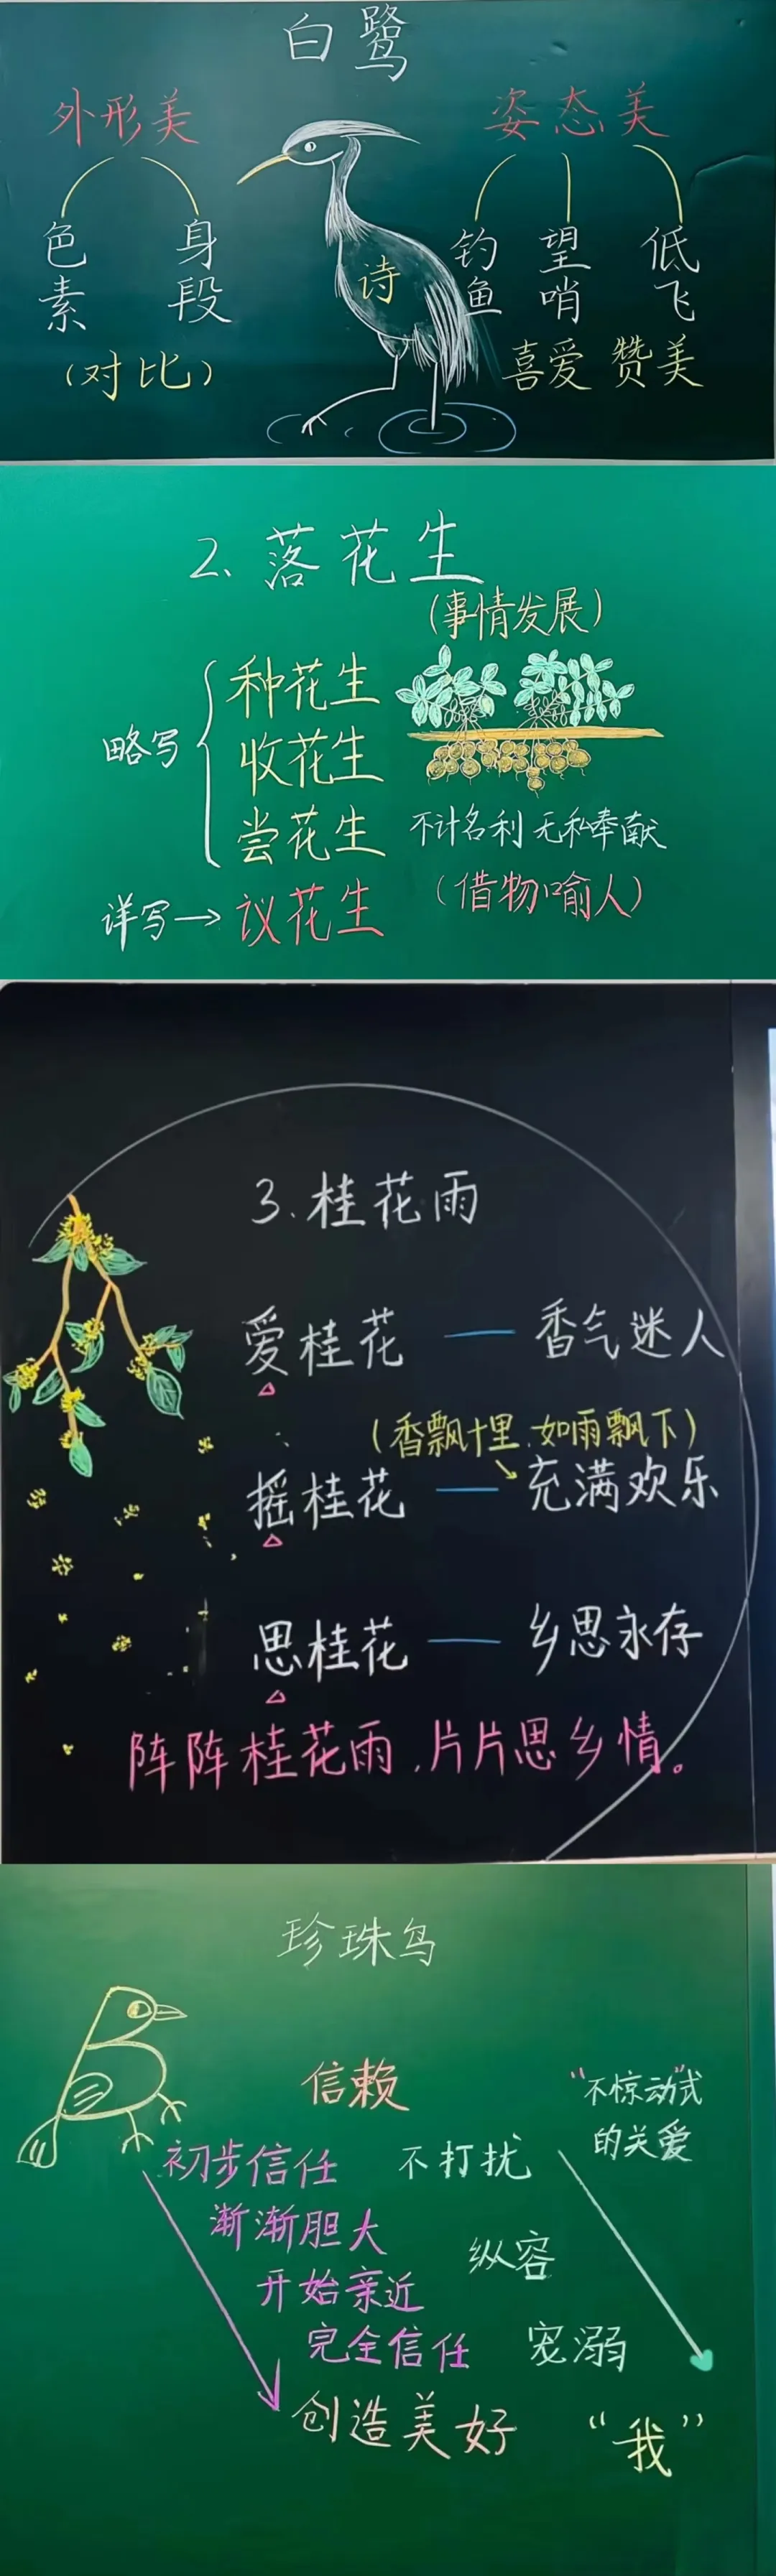 白鹭
外形美
姿态美
色素
身段
(对比)
诗
钓鱼
望哨
低飞
喜爱 赞美
2、落花生
(事情发展)
略写
种花生
收花生
尝花生
不计名利 无私奉献
详写→议花生
(借物喻人)
3.桂花雨
爱桂花 — 香气迷人
(香飘十里、如雨飘下)
摇桂花 — 充满欢乐
思桂花 — 乡思永存
阵阵桂花雨,片片思乡情。
珍珠鸟
信赖
"不惊动"式
的关爱
初步信任
不打扰
渐渐胆大
纵容
开始亲近
完全信任
宠溺
创造美好
“我”